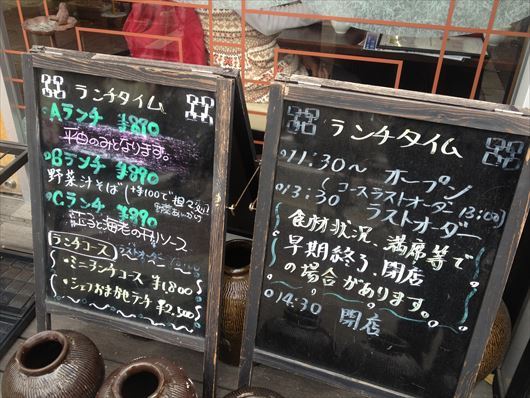 ランチタイム
Aランチ ¥890
平日のみとなります。
Bランチ ¥890
野菜汁そば (+¥100で担々に)
Cランチ ¥890
茄子と海老のチリソース
ランチコース ラストオーダー
・ミニランチコース ¥1,800
・シェフおまかせランチ ¥2,500
ランチタイム
11:30〜 オープン
(コースラストオーダー 13:00)
13:30 ラストオーダー
食材状況、満席等で
早期終了、閉店
の場合があります。
14:30 閉店